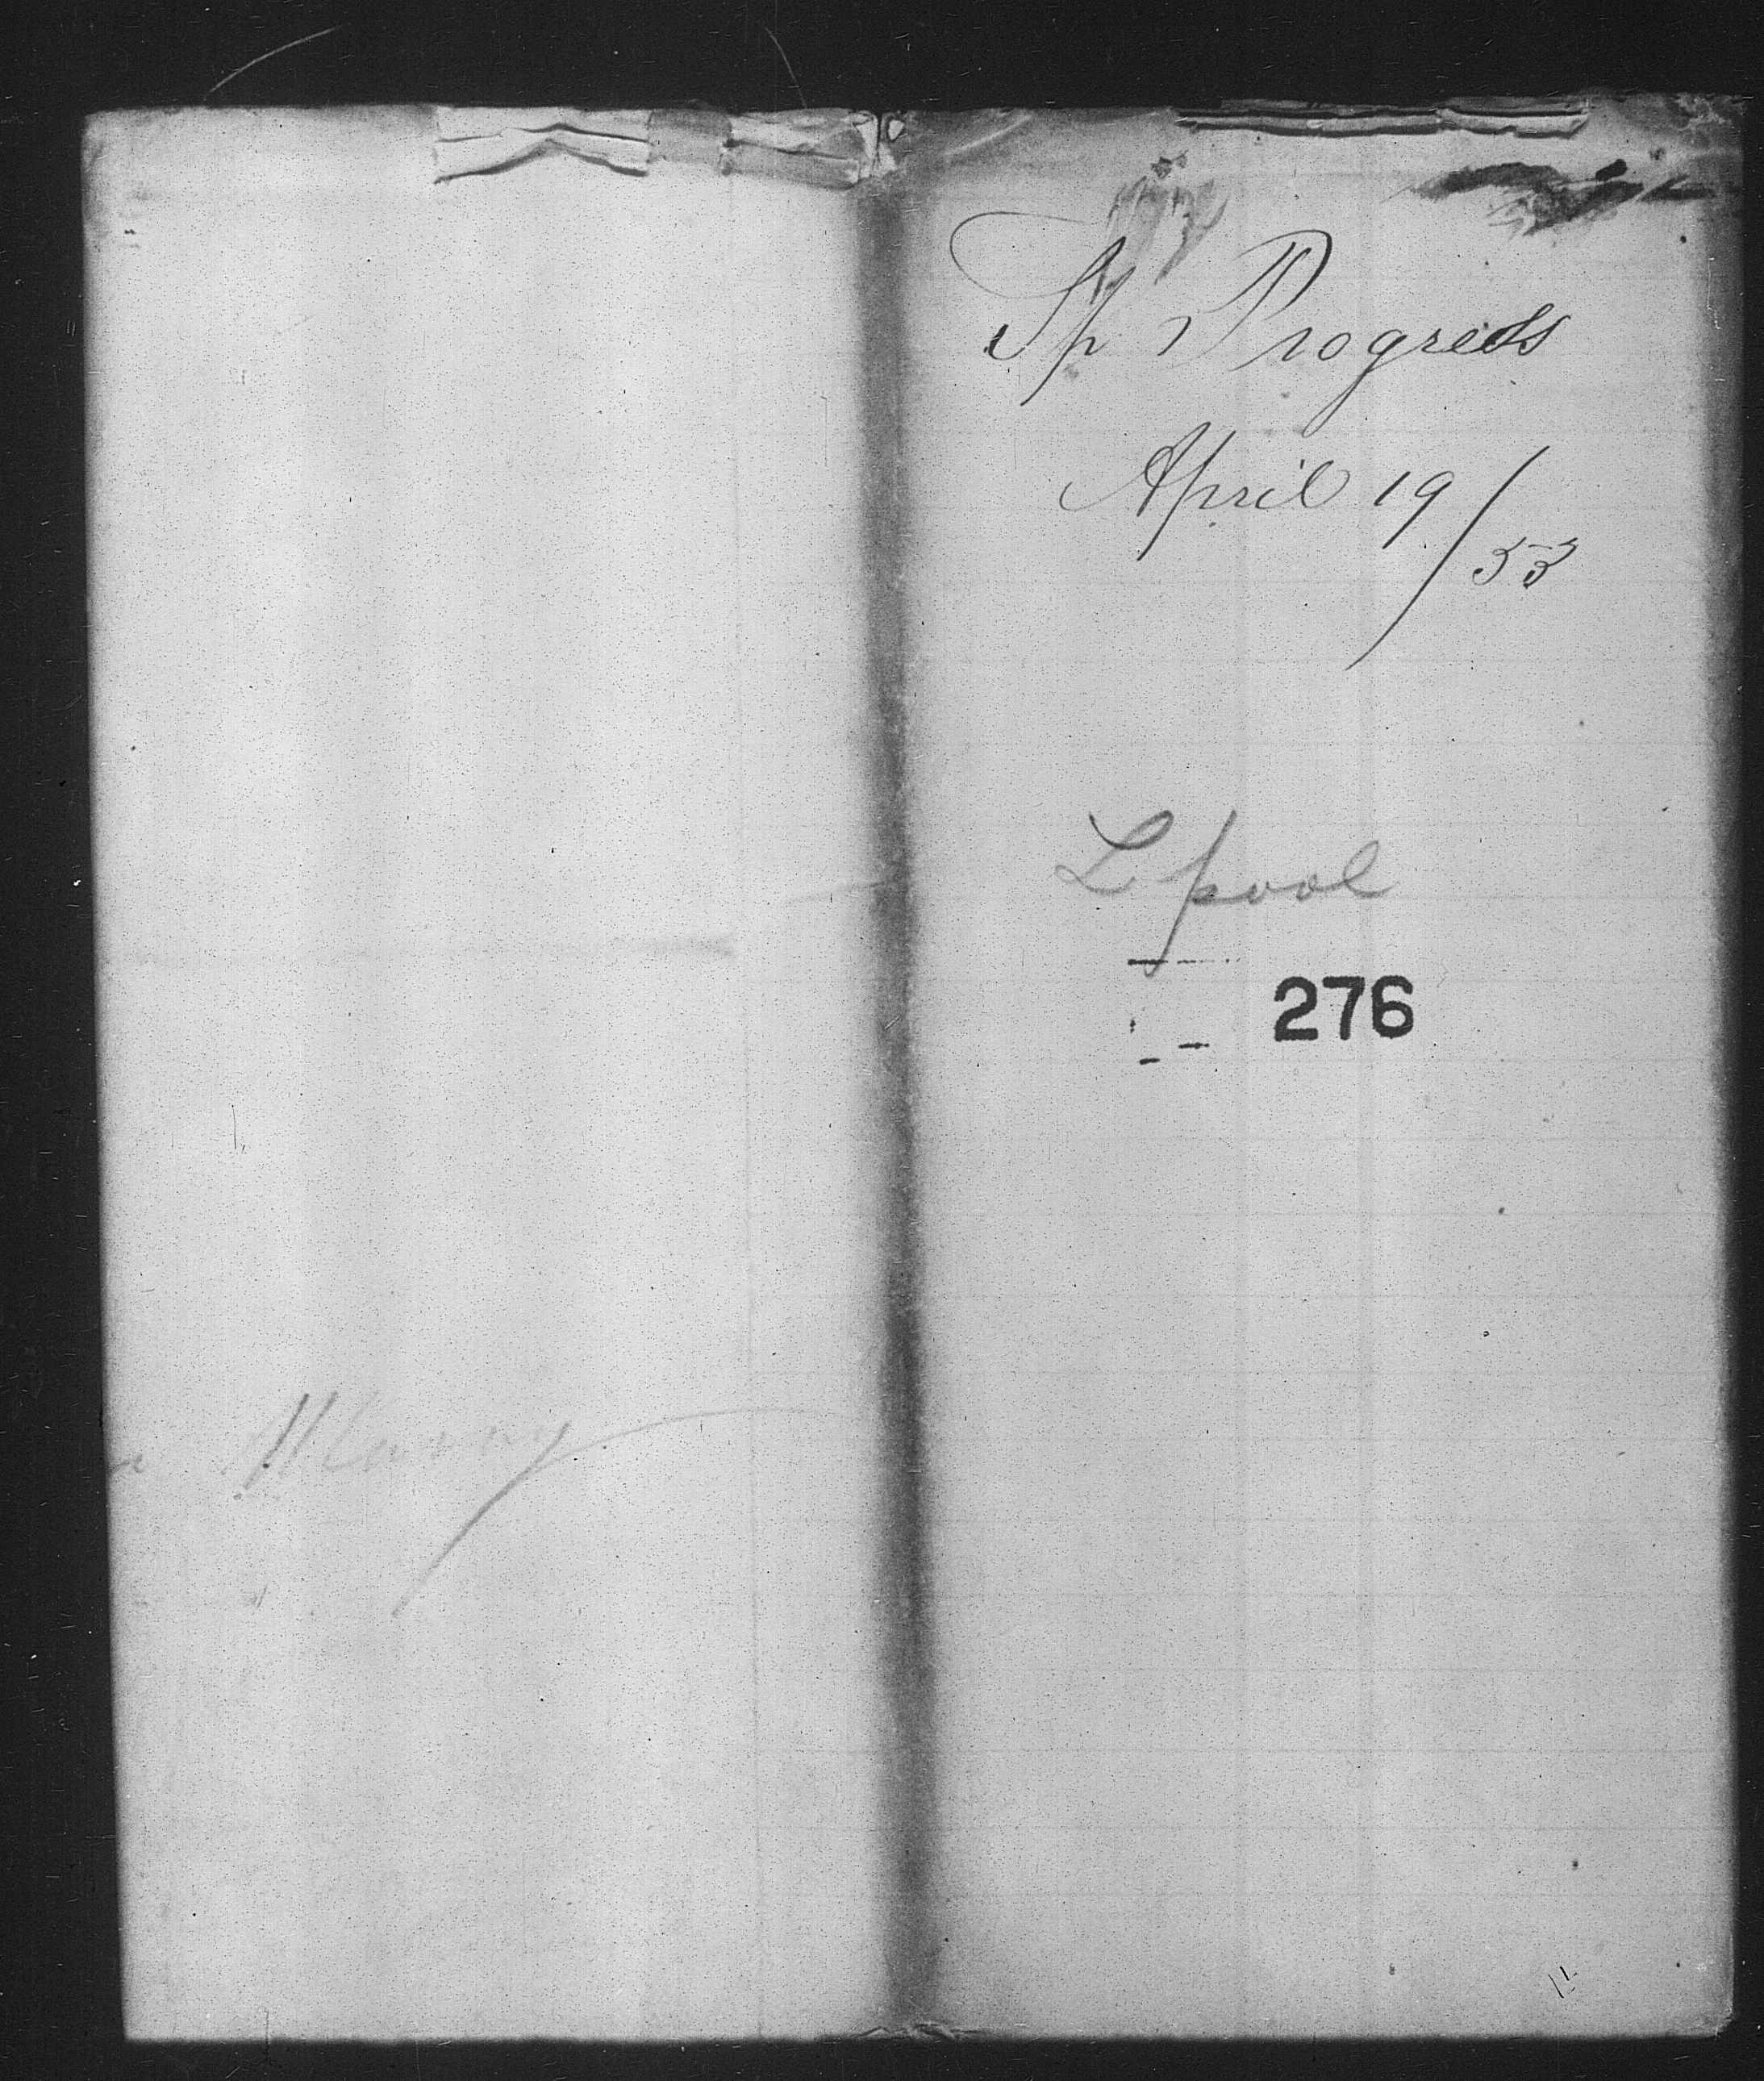 Sp Progress
April 19/53
L pool
276